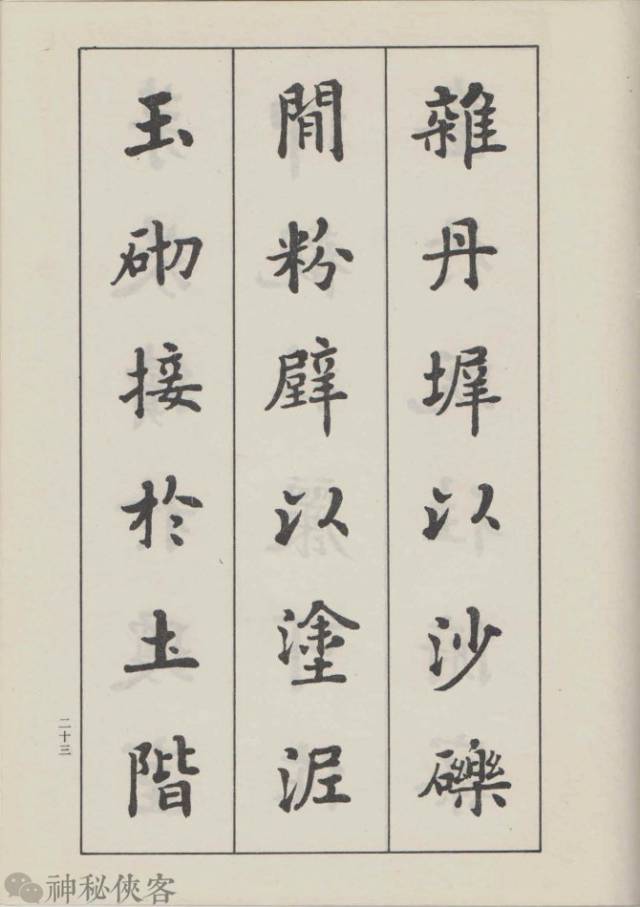 雜丹墀以沙礫
間粉壁以塗泥
玉砌接於土階
二十三
神秘俠客